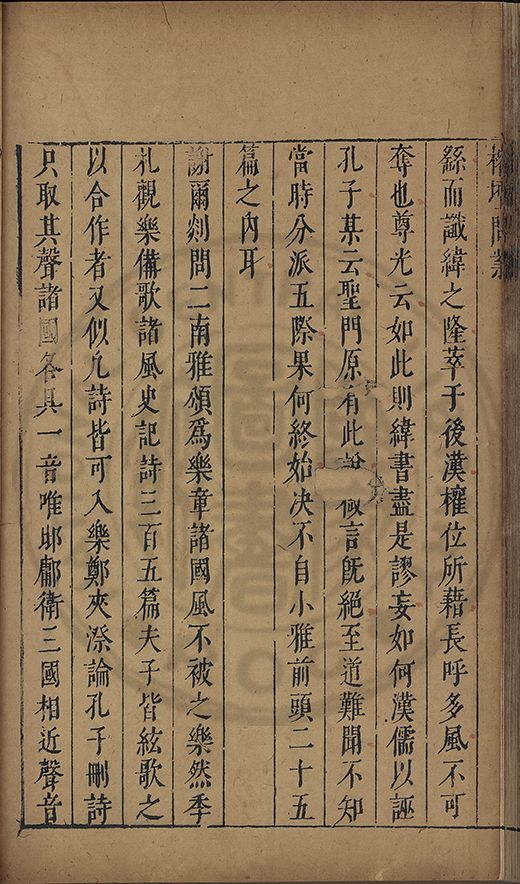 榕壇問業
繇而讖緯之隆萃于後漢榷位所藉長呼多風不可
奪也尊光云如此則緯書盡是謬妄如何漢儒以誣
孔子某云聖門原有此說微言旣絕至道難聞不知
當時分派五際果何終始决不自小雅前頭二十五
篇之內耳
謝爾剡問二南雅頌爲樂章諸國風不被之樂然季
札觀樂備歌諸風史記詩三百五篇夫子皆絃歌之
以合作者又似凢詩皆可入樂鄭夾漈論孔子刪詩
只取其聲諸國各具一音唯邶鄘衛三國相近聲音